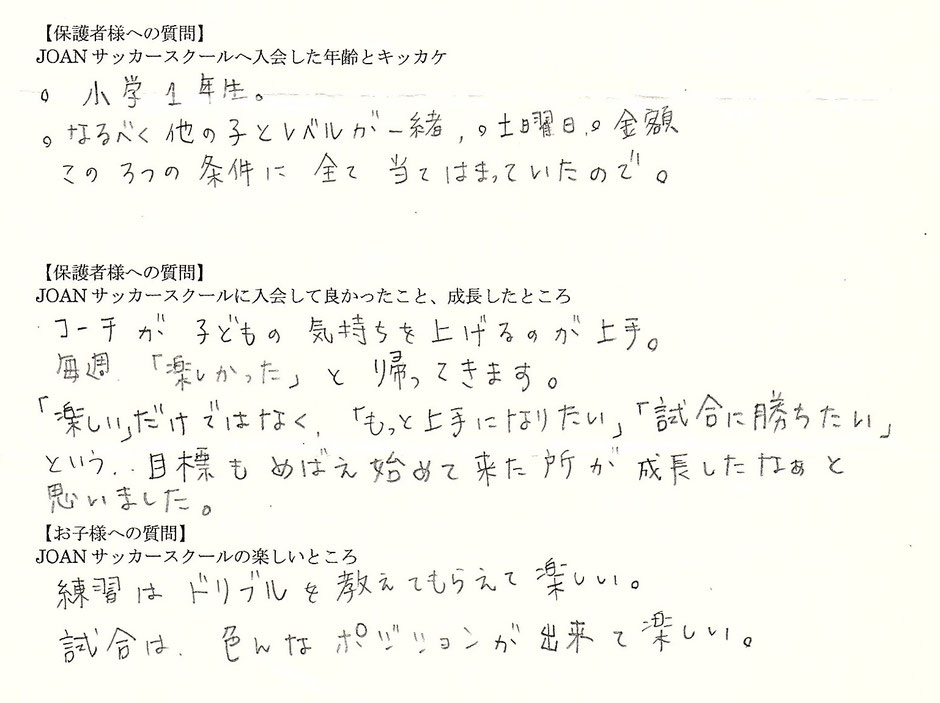 【保護者様への質問】
JOANサッカースクールへ入会した年齢とキッカケ
。小学1年生。
。なるべく他の子とレベルが一緒，。土曜日，。金額
この3つの条件に全て当てはまっていたので。
【保護者様への質問】
JOANサッカースクールに入会して良かったこと、成長したところ
コーチが子どもの気持ちを上げるのが上手。
毎週「楽しかった」と帰ってきます。
「楽しい」だけではなく、「もっと上手になりたい」「試合に勝ちたい」
という、目標もめばえ始めて来た所が成長したなぁと
思いました。
【お子様への質問】
JOANサッカースクールの楽しいところ
練習はドリブルを教えてもらえて楽しい。
試合は、色んなポジションが出来て楽しい。